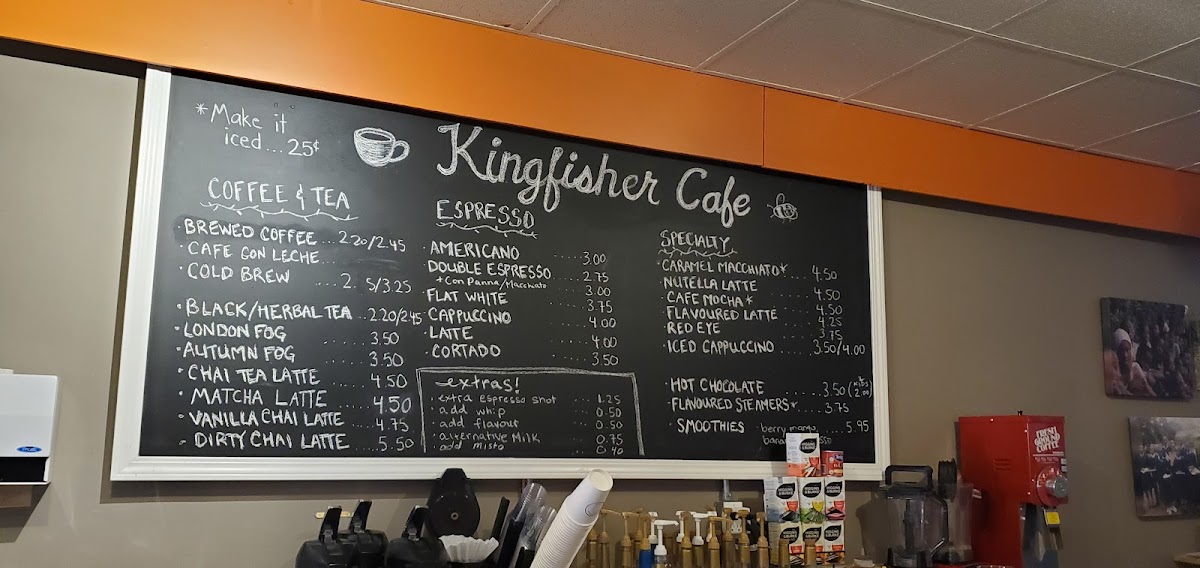 *Make it
iced...25¢
Kingfisher Cafe
COFFEE & TEA
·BREWED COFFEE...2.20/2.45
·CAFE CON LECHE...
·COLD BREW ...2. 5/3.25
·BLACK/HERBAL TEA...2.20/2.45
·LONDON FOG 3.50
·AUTUMN FOG 3.50
·CHAI TEA LATTE 4.50
·MATCHA LATTE 4.50
·VANILLA CHAI LATTE 4.75
·DIRTY CHAI LATTE 5.50
ESPRESSO
·AMERICANO ....3.00
DOUBLE ESPRESSO ....2.75
+Con Panna/Macchiato ....3.00
·FLAT WHITE ....3.75
·CAPPUCCINO ....4.00
·LATTE ....4.00
·CORTADO ....3.50
extras!
·extra espresso shot ...1.25
·add whip ..0.50
·add flavour ..0.50
·alternative milk ..0.75
add misto ..0.40
SPECIALTY
·CARAMEL MACCHIATO*....4.50
·NUTELLA LATTE ....4.50
·CAFE MOCHA* ....4.50
·FLAVOURED LATTE ....4.25
·RED EYE ....3.75
·ICED CAPPUCCINO ....3.50/4.00
·HOT CHOCOLATE ....3.50 (KIDS 2.00)
·FLAVOURED STEAMERS*...3.75
·SMOOTHIES - berry mango 5.95
FRESH
GROUND
COFFEE
HIGGINS
&BURKE
HIGGINS
&BURKE
HIGGINS
&BURKE